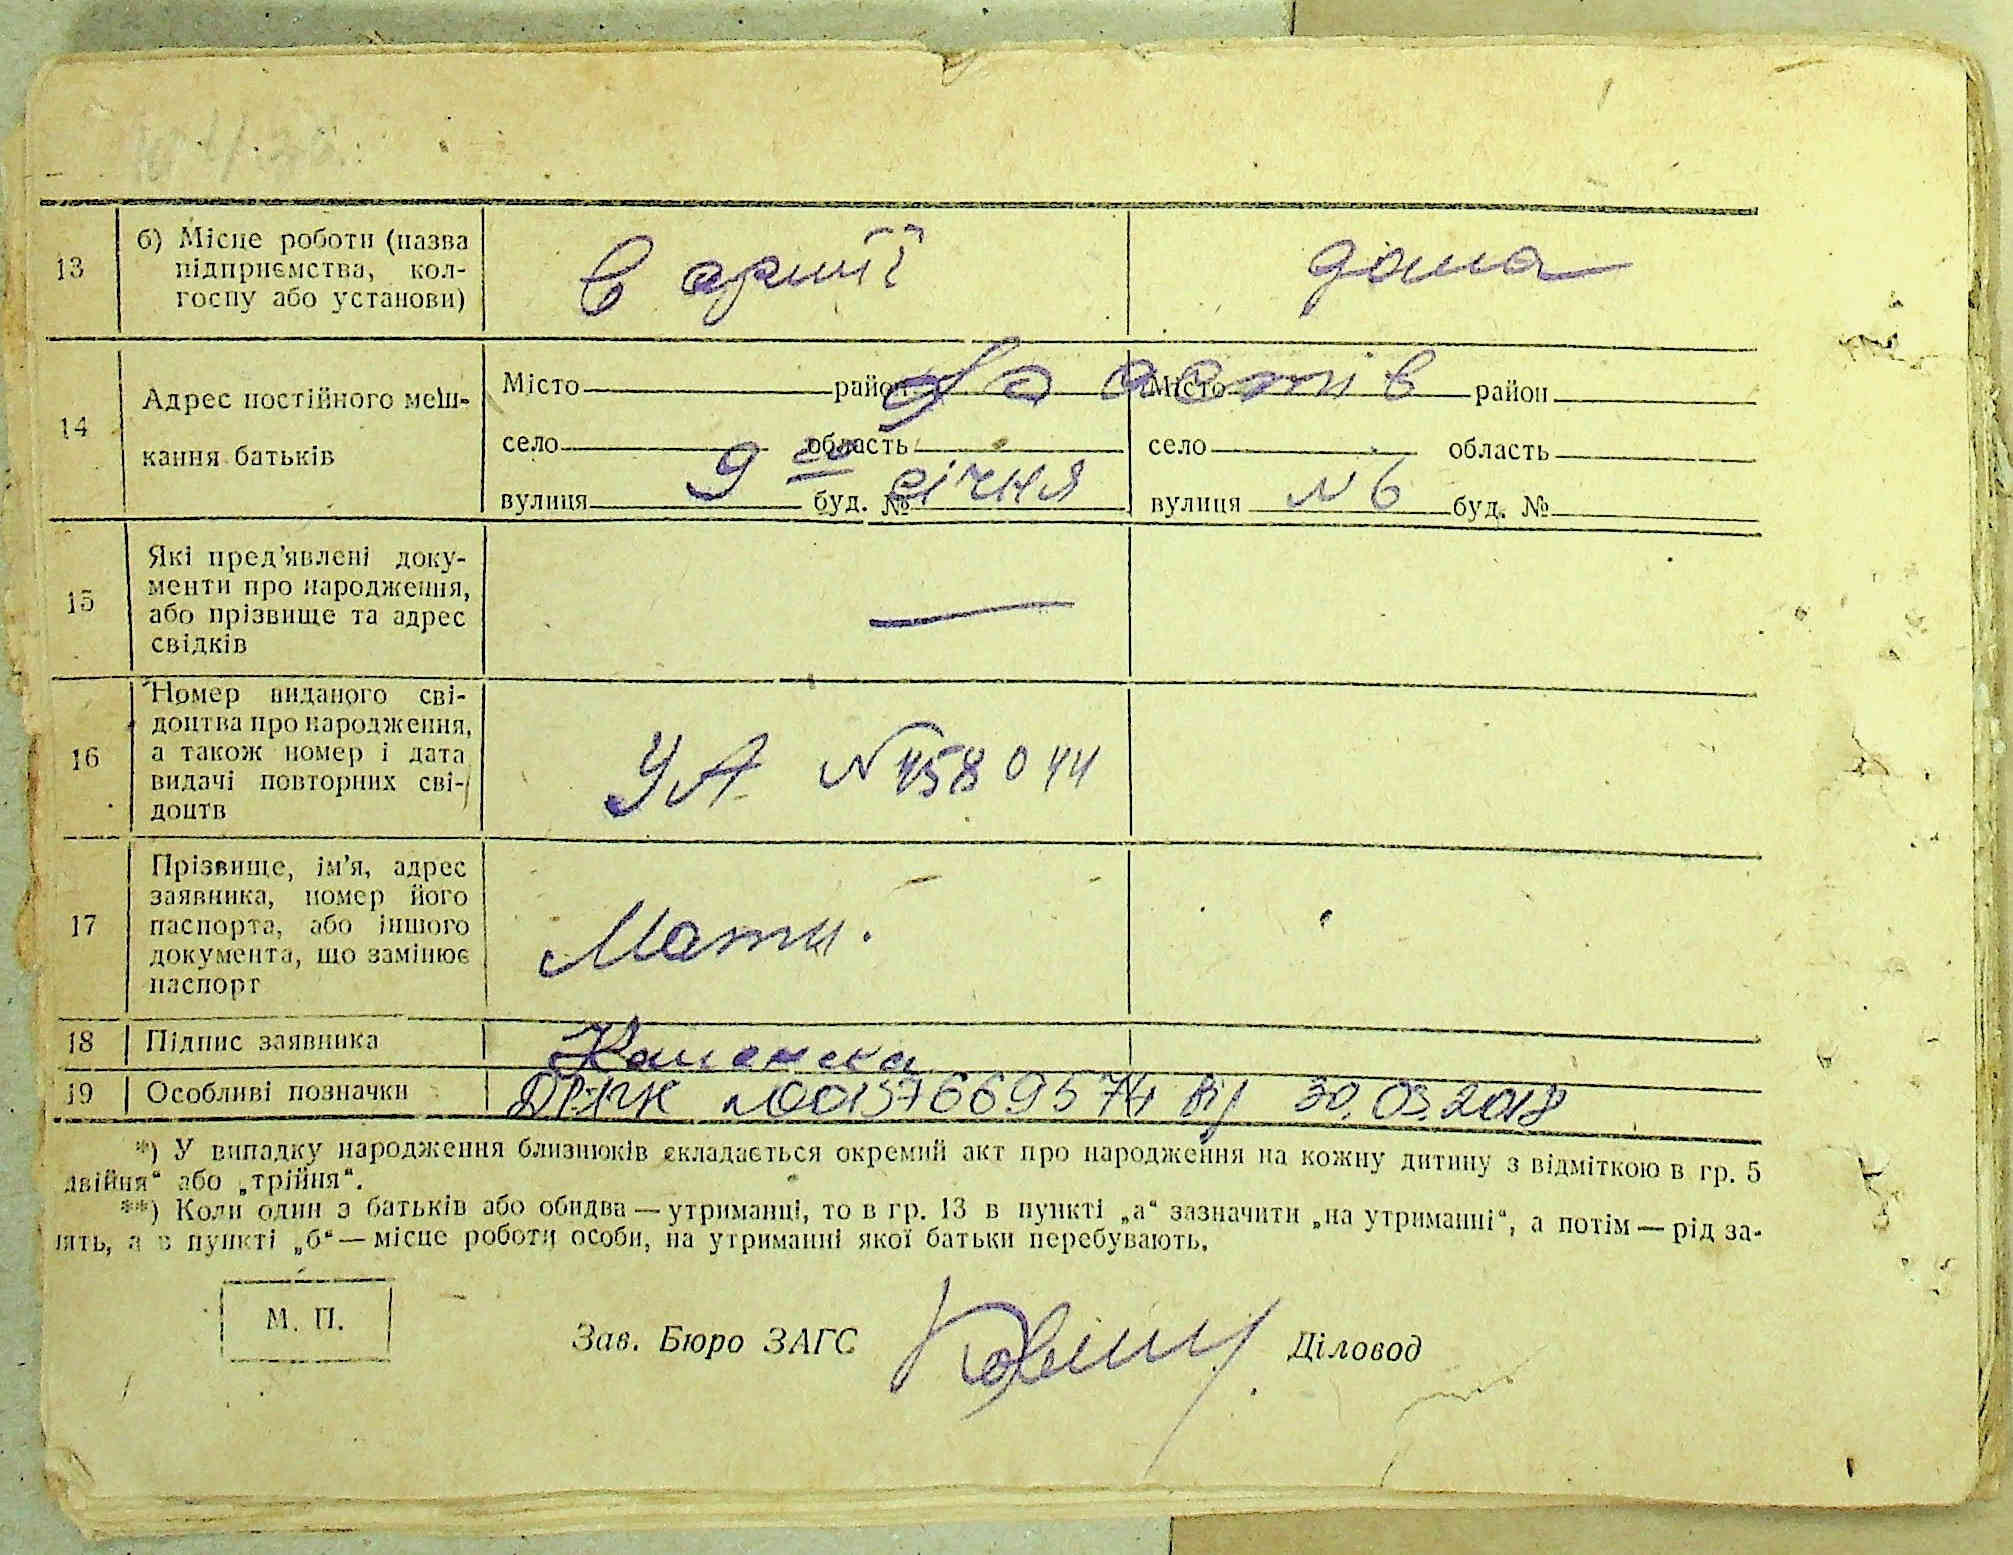 13
б) Місце роботи (назва
підприємства, кол-
госпу або установи)
в армії
дома
14
Адрес постійного меш-
кання батьків
Місто район Місто район
Фастів
село область село область
9го січня №6
вулиця буд. № вулиця буд. №
15
Які пред'явлені доку-
менти про народження,
або прізвище та адрес
свідків
—
16
Номер виданого сві-
доцтва про народження,
а також номер і дата
видачі повторних сві-
доцтв
УА №458044
17
Прізвище, ім'я, адрес
заявника, номер його
паспорта, або іншого
документа, що замінює
паспорт
Мати.
18 Підпис заявника
19 Особливі позначки
№00157669574 від 30.03.2018
*) У випадку народження близнюків складається окремий акт про народження на кожну дитину з відміткою в гр. 5
двійня“ або „трійня“.
**) Коли один з батьків або обидва — утриманці, то в гр. 13 в пункті „а“ зазначити „на утриманні“, а потім — рід за-
нять, а в пункті „б“ — місце роботи особи, на утриманні якої батьки перебувають.
М. П.
Зав. Бюро ЗАГС
Діловод